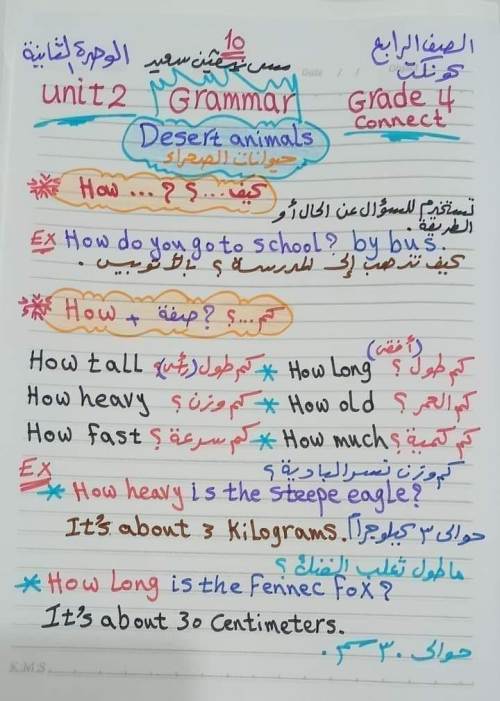 الوحدة الثانية 10 الصف الرابع
مس نيفين سعيد كونكت
unit 2 Grammar Grade 4
connect
Desert animals
حيوانات الصحراء
How ...? كيف ...؟
تستخدم للسؤال عن الحال أو
الطريقة.
EX How do you go to school? by bus.
كيف تذهب إلى المدرسة؟ بالأتوبيس.
How + صفة? كم...؟
(أفقى)
How tall كم طول (رأسى)؟ * How Long كم طول؟
How heavy كم وزن؟ * How old كم العمر؟
How fast كم سرعة؟ * How much كم كمية؟
EX كم وزن نسر البادية؟
* How heavy is the steepe eagle?
It's about 3 Kilograms. حوالى ٣ كيلوجراماً
ما طول ثعلب الفنك؟
* How Long is the Fennec Fox?
It's about 30 Centimeters.
حوالى ٣٠ سم.
K.M.S